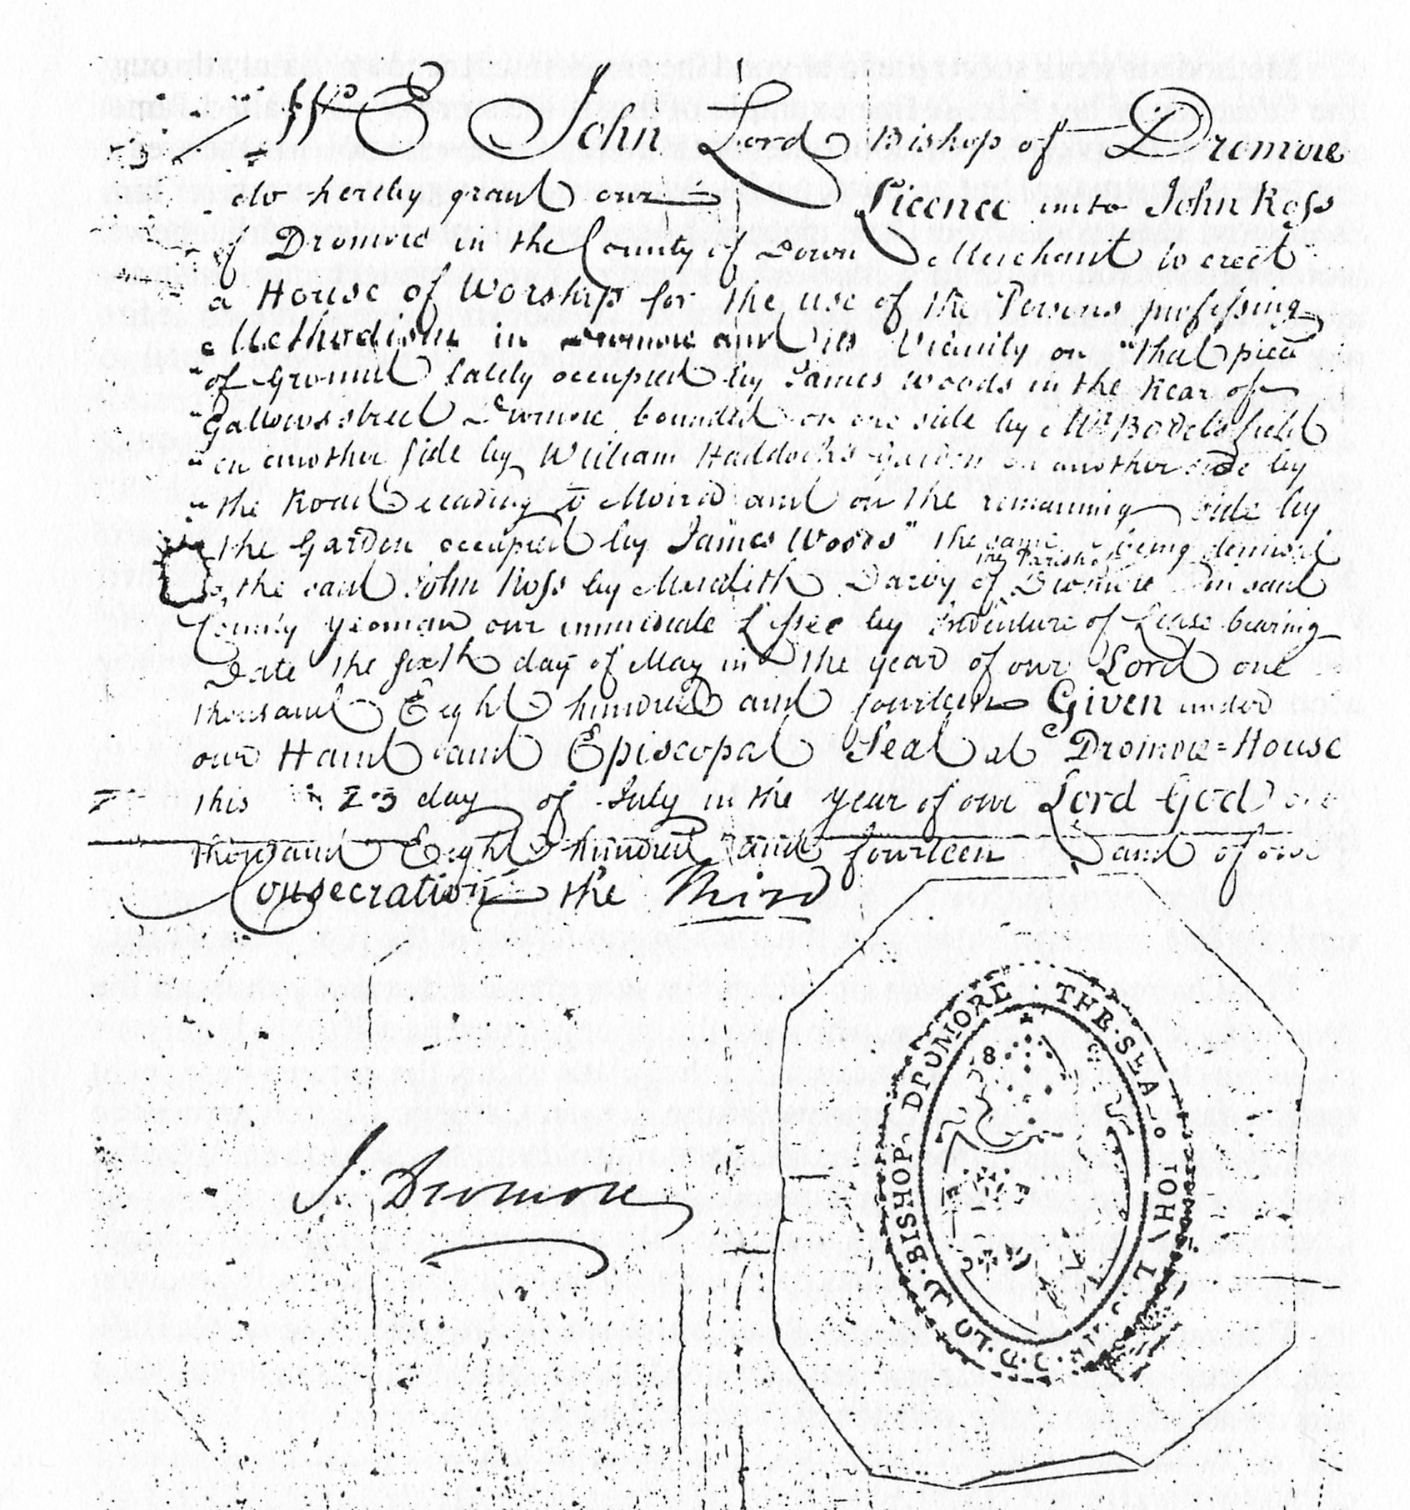 WE John Lord Bishop of Dromore
do hereby grant our Licence unto John Ross
of Dromore in the County of Down Merchant to erect
a House of Worship for the use of the Persons professing
Methodism in Dromore and its Vicinity on "that piece
"of Ground lately occupied by James Woods in the Rear of
"Gallows street Dromore bounded on one side by Mr. Boyds field
"on another side by William Haddocks Garden on another side by
"the Road leading to Moira and on the remaining side by
"the Garden occupied by James Woods" the same being demised
the Parish of
to the said John Ross by Meredith Darby of Dromore in said
County Yeoman our immediate Lessee by Indenture of Lease bearing
Date the sixth day of May in the year of our Lord one
thousand Eight hundred and fourteen Given under
our Hand and Episcopal Seal at Dromore-House
this 23 day of July in the year of our Lord God one
thousand Eight hundred and fourteen and of our
Consecration the Third
J. Dromore
THE SEA
LD BISHOP DROMORE